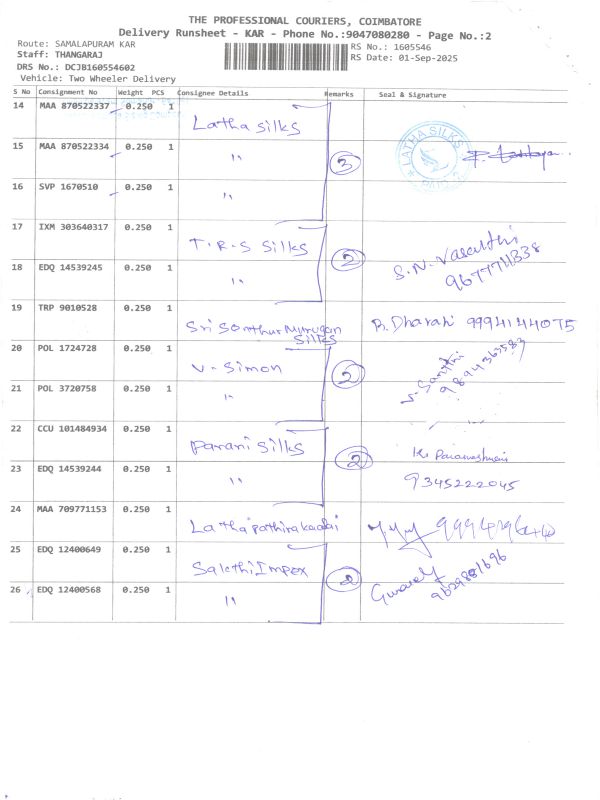 THE PROFESSIONAL COURIERS, COIMBATORE
Delivery Runsheet - KAR - Phone No.:9047080280 - Page No.:2
Route: SAMALAPURAM KAR
RS No.: 1605546
Staff: THANGARAJ
RS Date: 01-Sep-2025
DRS No.: DCJB160554602
Vehicle: Two Wheeler Delivery
S No Consignment No Weight PCS Consignee Details Remarks Seal & Signature
14 MAA 870522337 0.250 1 Latha Silks
15 MAA 870522334 0.250 1 " 3 LATHA SILKS
16 SVP 1670510 0.250 1 "
17 IXM 303640317 0.250 1 T.R.S Silks 2 S.N. Vasanthi
18 EDQ 14539245 0.250 1 "
19 TRP 9010528 0.250 1 Sri Senthur Murugan Silks B. Dharani 9994144075
20 POL 1724728 0.250 1 V-Simon 2 S. Santhi 9894363583
21 POL 3720758 0.250 1 "
22 CCU 101484934 0.250 1 Parani Silks 2
23 EDQ 14539244 0.250 1 " 9345222045
24 MAA 709771153 0.250 1 Latha
25 EDQ 12400649 0.250 1 Sakthi Impex 2
26 EDQ 12400568 0.250 1 "